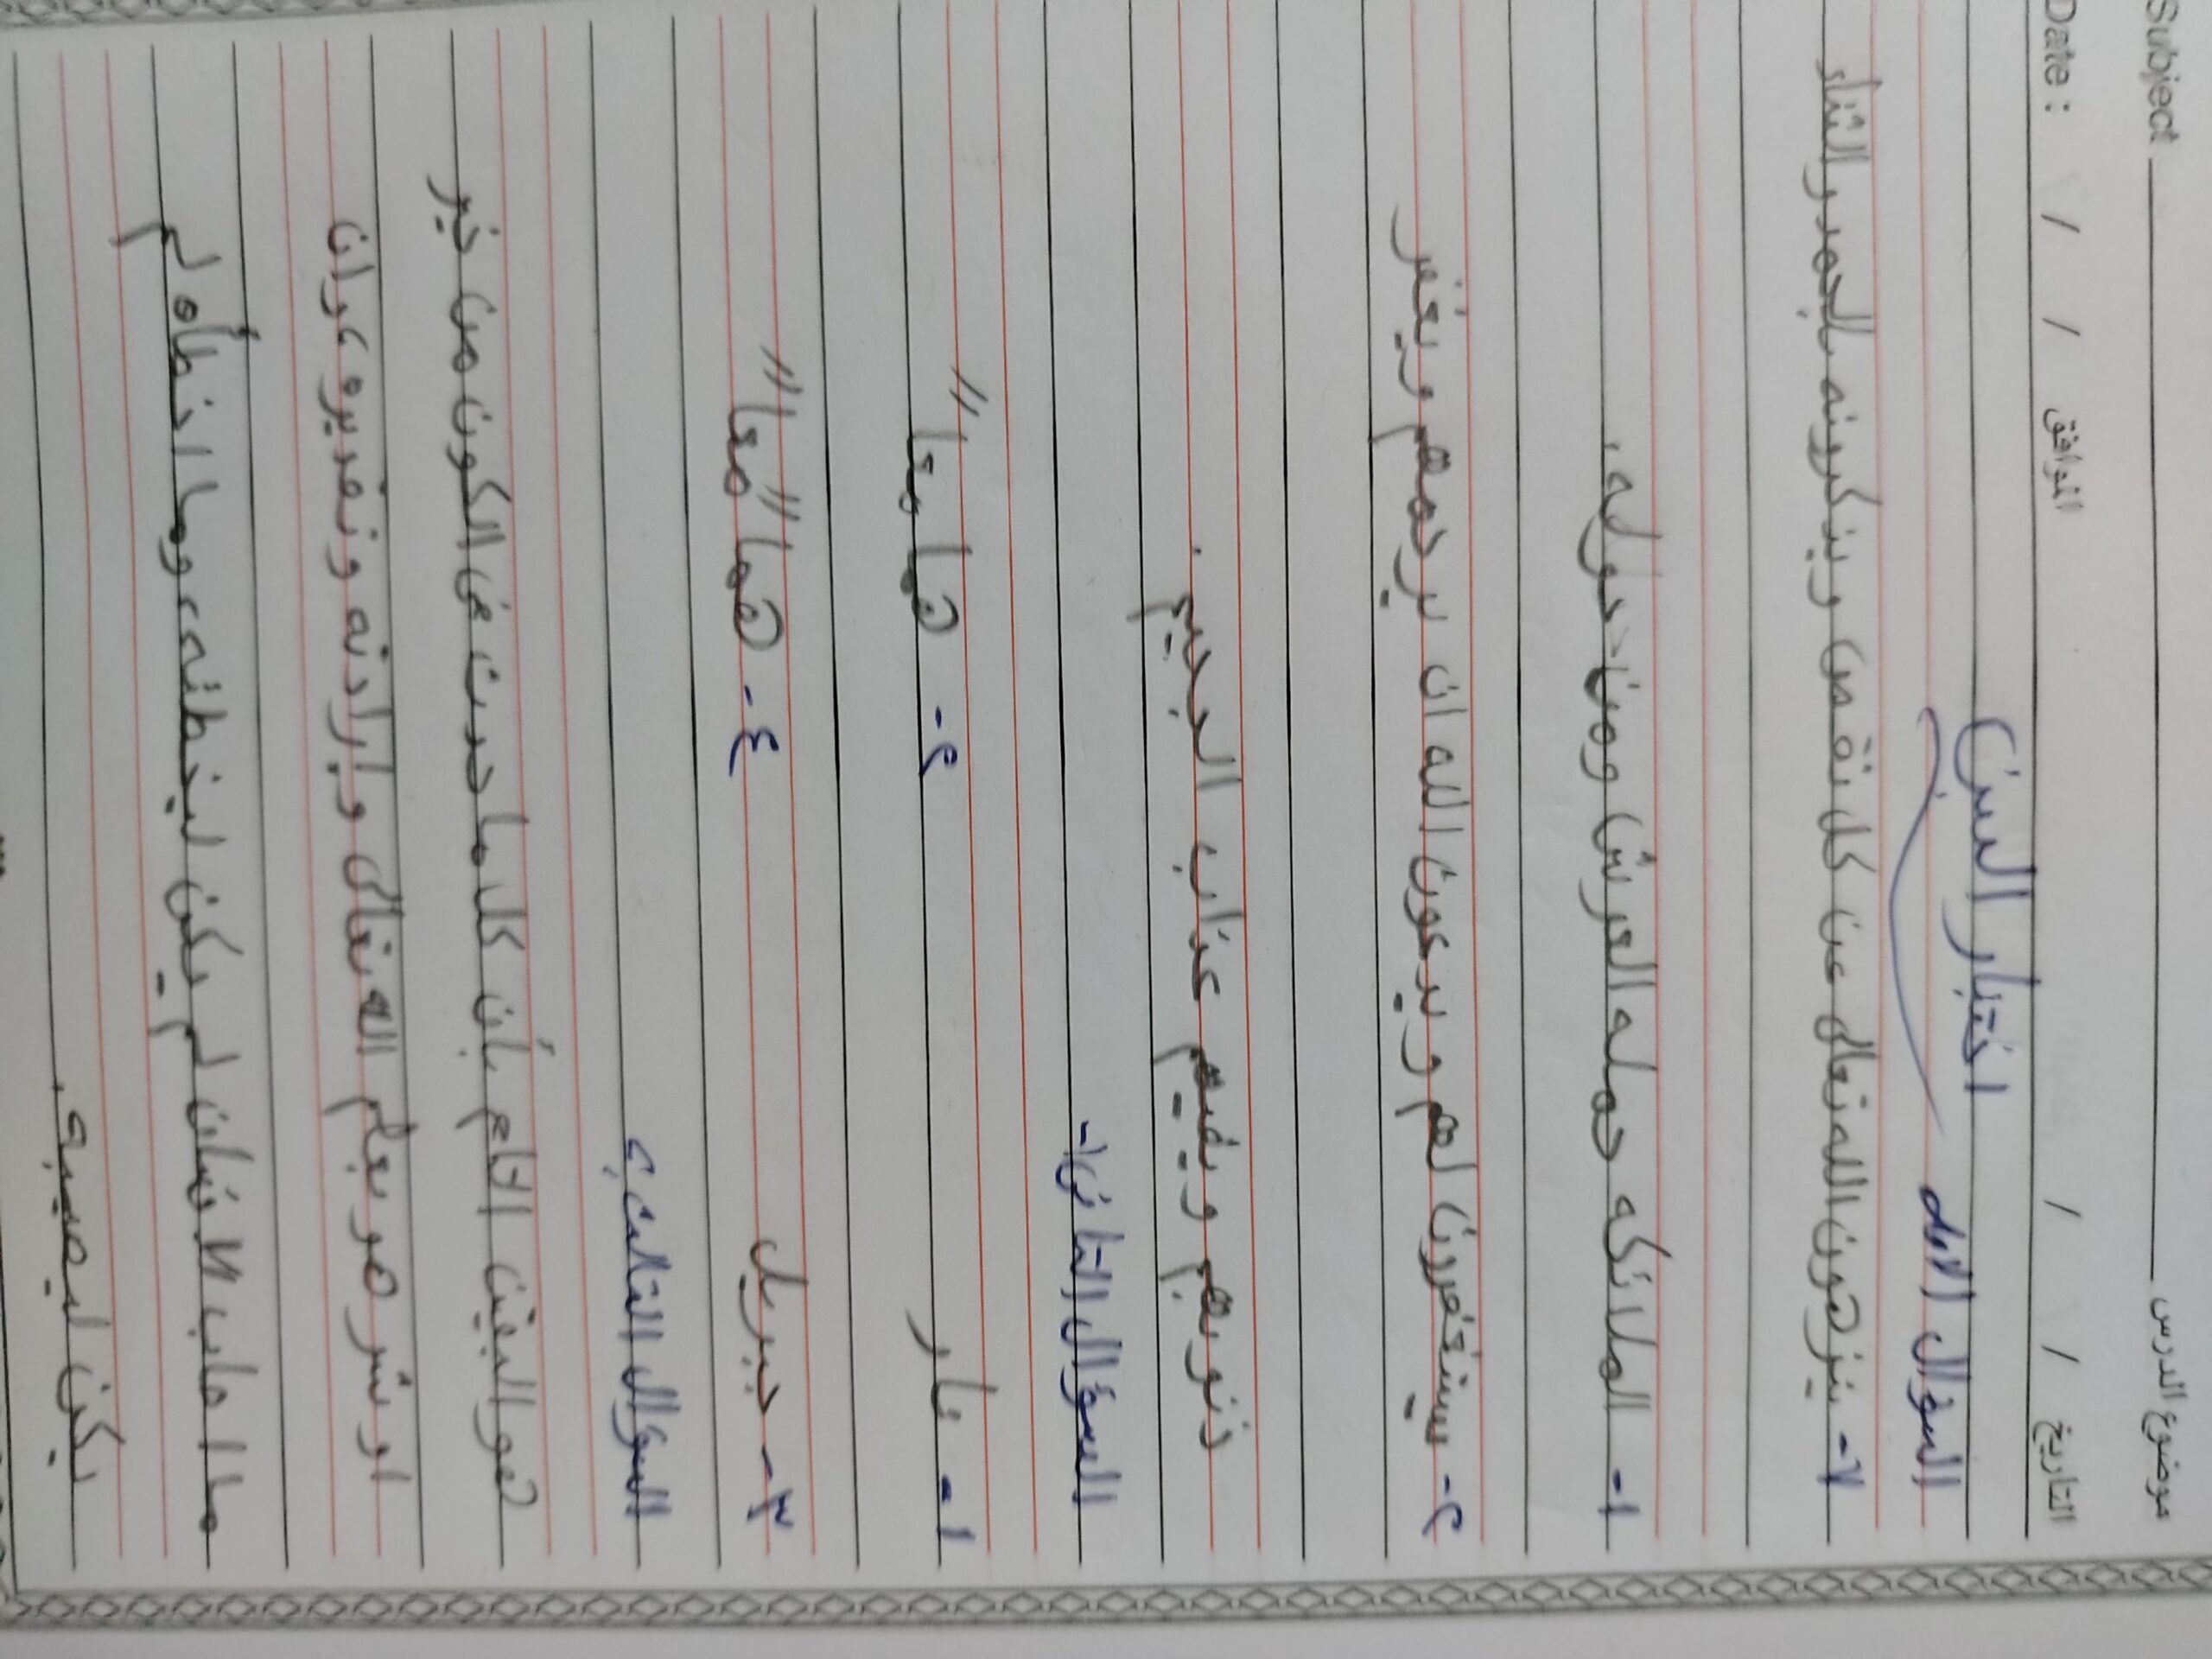 Subject موضوع الدرس
Date : / / الموافق / / التاريخ
اختبار الدين
السؤال الاول
٦- ينزهون الله تعالى عن كل نقص ويذكرونه بالجمد والثناء
١- الملائكه حمله العرش ومن حوله.
٢- يستغفرون لهم ويدعون الله ان يرحمهم ويغفر
ذنوبهم ويقيهم عذاب الجحيم.
السؤال الثاني:-
١- نار ٢- هما معا"
٣- جبريل ٤- هما" معا"
السؤال الثالث؟
هو اليقين التام بأن كل ما حدث في الكون من خير
او شر هو بعلم الله تعالى وإرادته وتقديره وان
ما اصاب الانسان لم يكن ليخطئه وما اخطأه لم
يكن ليصيبه.